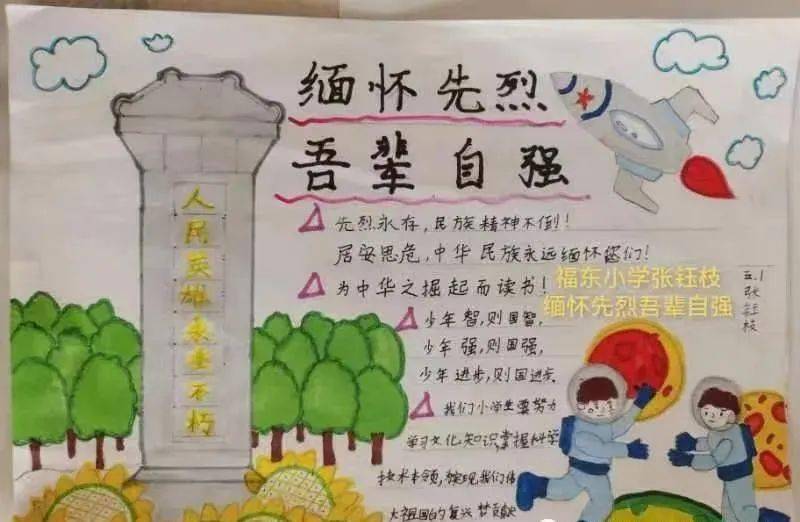 缅怀先烈
吾辈自强
人民英雄永垂不朽
先烈永存,民族精神不倒!
居安思危,中华民族永远缅怀您们!
为中华之掘起而读书!
少年智,则国智,
少年强,则国强,
少年进步,则国进步
我们小学生要努力
学习文化知识掌握科学
技术本领,实现我们伟
大祖国的复兴梦贡献
五.1
张钰枝
福东小学张钰枝
缅怀先烈吾辈自强